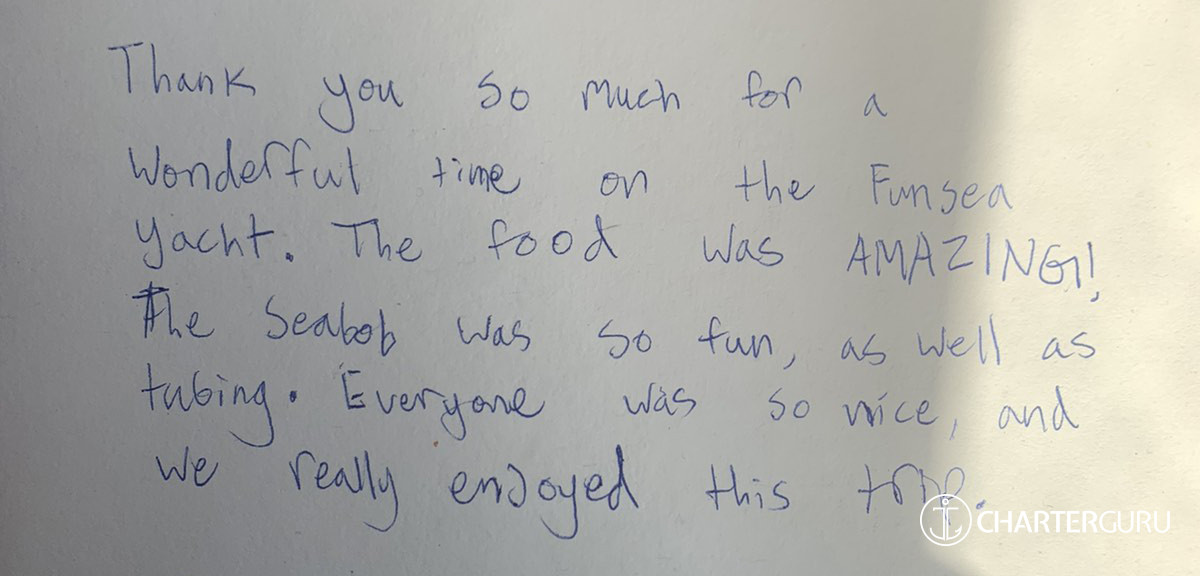 Thank you so much for a
Wonderful time on the Funsea
yacht. The food was AMAZING!
The Seabob was so fun, as well as
tubing. Everyone was so nice, and
we really enjoyed this trip.
CHARTERGURU